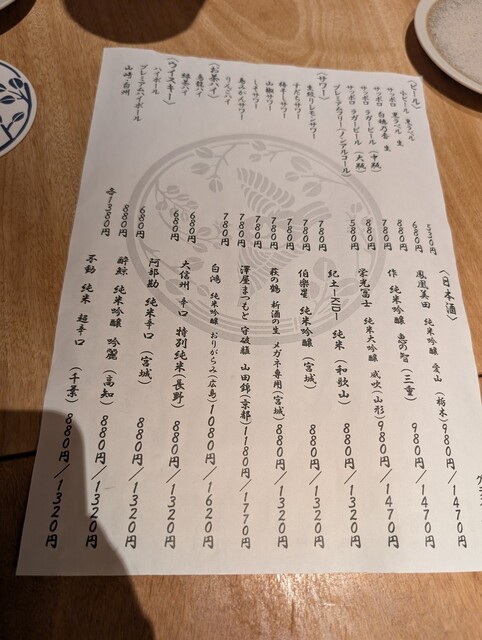 〈ビール〉
小ビール 黒ラベル 生 530円
サッポロ 黒ラベル 生 680円
サッポロ 白穂乃香 生 880円
サッポロ ラガービール(中瓶) 780円
サッポロ ラガービール(大瓶) 880円
プレミアムフリー(ノンアルコール) 580円
〈サワー〉
生絞りレモンサワー 780円
すだちサワー 780円
梅干しサワー 780円
山椒サワー 780円
しそサワー 780円
島みかんサワー 780円
りんごハイ 780円
〈お茶ハイ〉
烏龍ハイ 680円
緑茶ハイ 680円
〈ウイスキー〉
ハイボール 680円
プレミアムハイボール 880円
山崎・白州 1380円
〈日本酒〉
鳳凰美田 純米吟醸 愛山(栃木) 980円/1470円
作 純米吟醸 恵の智(三重) 980円/1470円
栄光冨士 純米大吟醸 威吹(山形) 980円/1470円
紀土-KID- 純米(和歌山) 880円/1320円
伯楽星 純米吟醸(宮城) 880円/1320円
萩の鶴 新酒の生 メガネ専用(宮城) 880円/1320円
澤屋まつもと 守破離 山田錦(京都) 1180円/1770円
白鴻 純米吟醸 おりがらみ(広島) 1080円/1620円
大信州 辛口 特別純米(長野) 880円/1320円
阿部勘 純米辛口(宮城) 880円/1320円
酔鯨 純米吟醸 吟麗(高知) 880円/1320円
不動 純米 超辛口(千葉) 880円/1320円